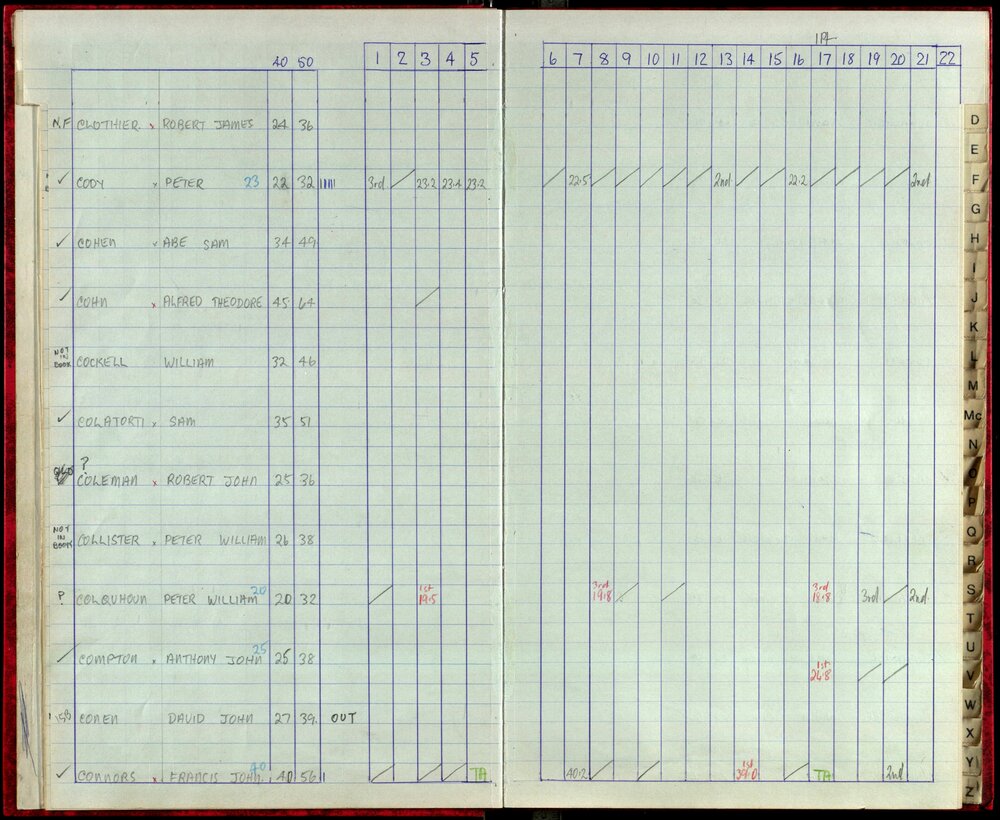 1PA
40 50 1 2 3 4 5 6 7 8 9 10 11 12 13 14 15 16 17 18 19 20 21 22
N.F CLOTHIER x ROBERT JAMES 24 36
✓ CODY x PETER 23 22 32 3rd / 23.2 23.4 23.2 / 22.5 / / / / / 2nd / / 22.2 / / / / 2nd
✓ COHEN x ABE SAM 34 49
✓ COHN x ALFRED THEODORE 45 64 /
NOT IN BOOK COCKELL WILLIAM 32 46
✓ COLATORTI x SAM 35 51
?
COLEMAN x ROBERT JOHN 25 36
NOT IN BOOK COLLISTER x PETER WILLIAM 26 38
? COLQUHOUN PETER WILLIAM 20 20 32 / 1st 19.5 3rd 19.8 / / 3rd 18.8 3rd / 2nd
✓ COMPTON x ANTHONY JOHN 25 25 38 1st 24.8 / /
158 CONEN DAVID JOHN 27 39 OUT
✓ CONNORS x FRANCIS JOHN 40 40 56 / / / TA 40.2 / / 1st 39.0 / TA 2nd
D
E
F
G
H
I
J
K
L
M
Mc
N
O
P
Q
R
S
T
U
V
W
X
Y
Z